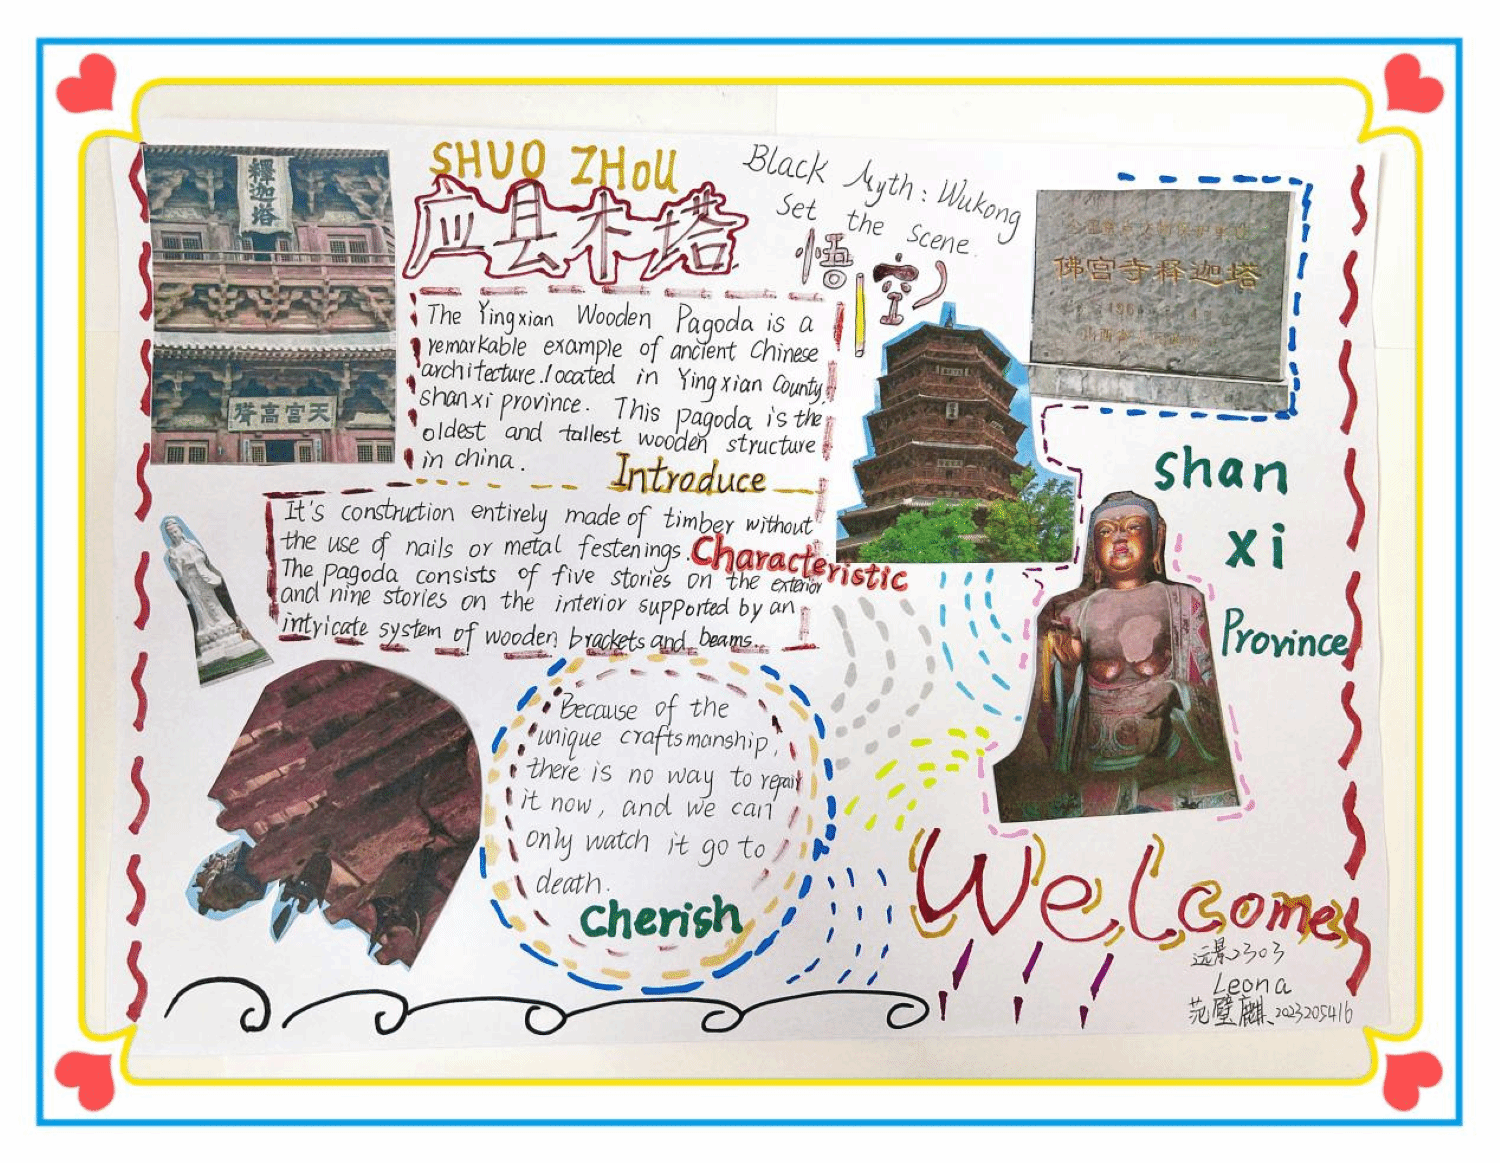 釋迦塔
天宫高聳
SHUO ZHOU
应县木塔
Black Myth: Wukong
Set the Scene.
悟空
佛宫寺释迦塔
The Yingxian Wooden Pagoda is a
remarkable example of ancient Chinese
architecture.located in Yingxian County,
shanxi province. This pagoda is the
oldest and tallest wooden structure
in china.
Introduce
It's construction entirely made of timber without
the use of nails or metal festenings.
Characteristic
The pagoda consists of five stories on the exterior
and nine stories on the interior supported by an
intricate system of wooden brackets and beams.
shan
xi
Province
Because of the
unique craftsmanship,
there is no way to repair
it now, and we can
only watch it go to
death.
Cherish
Welcome
远景2303
Leona
范璧麒 2023205416